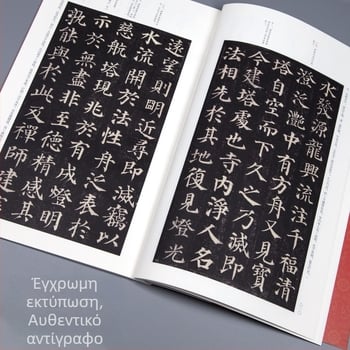 水發源龍興流注千福清
澄泛灩中有方舟又見寶
塔自空而下久之乃滅即
今建塔處也寺內淨人名
法相先於其地復見燈光
遠望則明近尋即滅竊以
水流開於法性舟泛表於
慈航塔現兆於有成燈明
示於無盡非至德精感其
孰能與於此及禪師建
Έγχρωμη
εκτύπωση,
Αυθεντικό
αντίγραφο